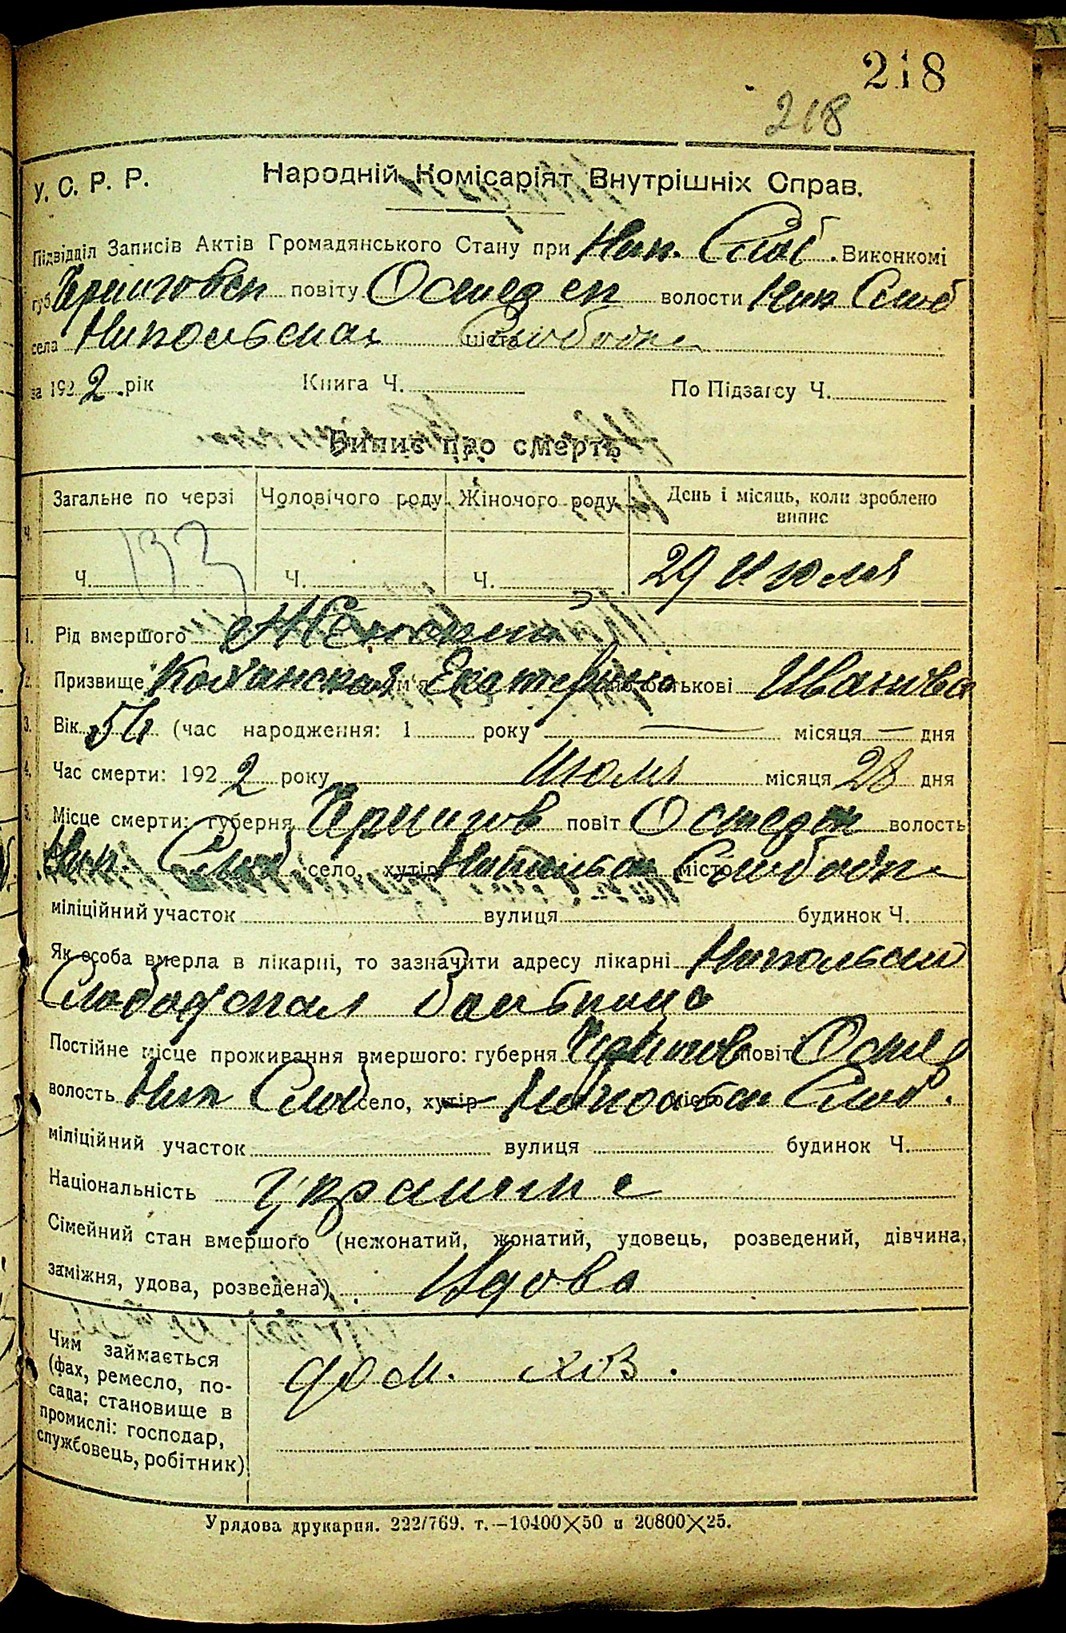 218
218
У. С. Р. Р. Народній Комісаріят Внутрішніх Справ.
Підвідділ Записів Актів Громадянського Стану при Ник. Слоб. Виконкомі
губ Черниговск повіту Остерск волости Ник Слоб
села Никольская міста Слободка
за 1922 рік Книга Ч. По Підзагсу Ч.
Випис про смерть
Загальне по черзі Чоловічого роду Жіночого роду День і місяць, коли зроблено
випис
Ч. 133 Ч. Ч. 29 Июля
1. Рід вмершого Женский
2. Призвище Ім'я Екатерина по батькові Иванова
3. Вік 54 (час народження: 1 року — місяця — дня
4. Час смерти: 1922 року Июля місяця 28 дня
5. Місце смерти: губерня Чернигов повіт Остерск волость
Ник. Слоб село, хутір Никольск місто Слободка
міліційний участок вулиця будинок Ч.
Як особа вмерла в лікарні, то зазначити адресу лікарні Никольск
Слободская больница
Постійне місце проживання вмершого: губерня Чернигов повіт Остер
волость Ник Слоб село, хутір Никольск місто Слоб.
міліційний участок вулиця будинок Ч.
Національність
Сімейний стан вмершого (нежонатий, жонатий, удовець, розведений, дівчина,
заміжня, удова, розведена) Вдова
Чим займається
(фах, ремесло, по-
сада; становище в
промислі: господар,
службовець, робітник)
дом. хоз.
Урядова друкарня. 222/769. т.—10400×50 и 20800×25.